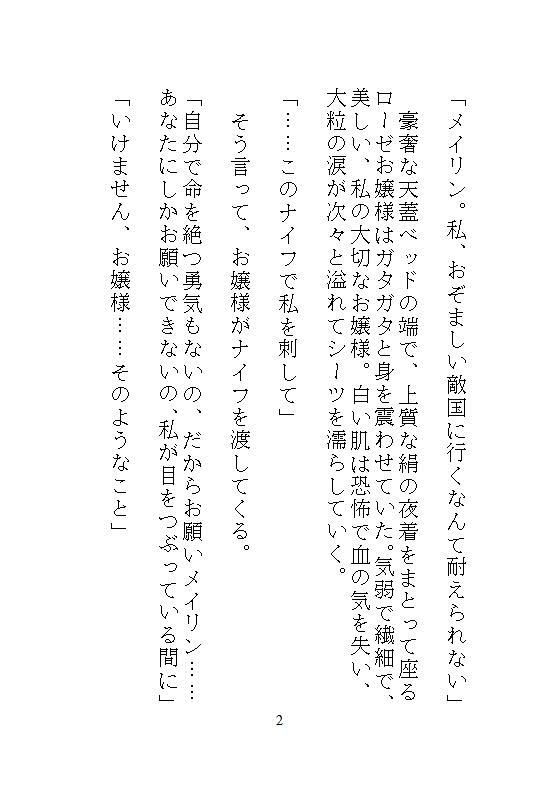 「メイリン。私、おぞましい敵国に行くなんて耐えられない」
豪奢な天蓋ベッドの端で、上質な絹の夜着をまとって座る
ローゼお嬢様はガタガタと身を震わせていた。気弱で繊細で、
美しい、私の大切なお嬢様。白い肌は恐怖で血の気を失い、
大粒の涙が次々と溢れてシーツを濡らしていく。
「……このナイフで私を刺して」
そう言って、お嬢様がナイフを渡してくる。
「自分で命を絶つ勇気もないの、だからお願いメイリン……
あなたにしかお願いできないの、私が目をつぶっている間に」
「いけません、お嬢様……そのようなこと」
2